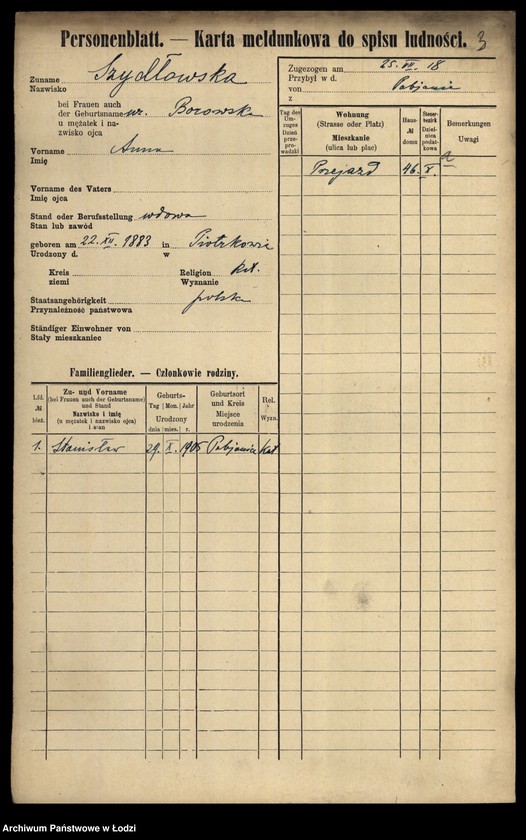 Personenblatt. — Karta meldunkowa do spisu ludności. 3
Zuname Szydłowska
Nazwisko
bei Frauen auch
der Geburtsname ur. Borowska
u mężatek i na-
zwisko ojca
Vorname Anna
Imię
Vorname des Vaters
Imię ojca
Stand oder Berufsstellung wdowa
Stan lub zawód
geboren am 22. XII. 1883 in Piotrkowie
Urodzony d. w
Kreis Religion kat.
ziemi Wyznanie
Staatsangehörigkeit polska
Przynależność państwowa
Ständiger Einwohner von
Stały mieszkaniec
Zugezogen am 25. VII. 18
Przybył w d.
von Pabjanic
z
Tag des Um-zuges Dzień prze-prowadzki
Wohnung
(Strasse oder Platz)
Mieszkanie
(ulica lub plac)
Haus-
№
domu
Steuer-bezirk Dzielnica podatkowa
Bemerkungen
Uwagi
Przejazd 46. X. a
Familienglieder. — Członkowie rodziny.
Lfd. № bież.
Zu- und Vorname
(bei Frauen auch der Geburtsname)
und Stand
Nazwisko i imię
(u mężatek i nazwisko ojca)
i stan
Geburts-
Tag Mon. Jahr
Urodzony
dnia mies. r.
Geburtsort
und Kreis
Miejsce
urodzenia
Rel.
Wyzn.
1. Stanisław 29. X. 1905 Pabjanice Kat
Archiwum Państwowe w Łodzi